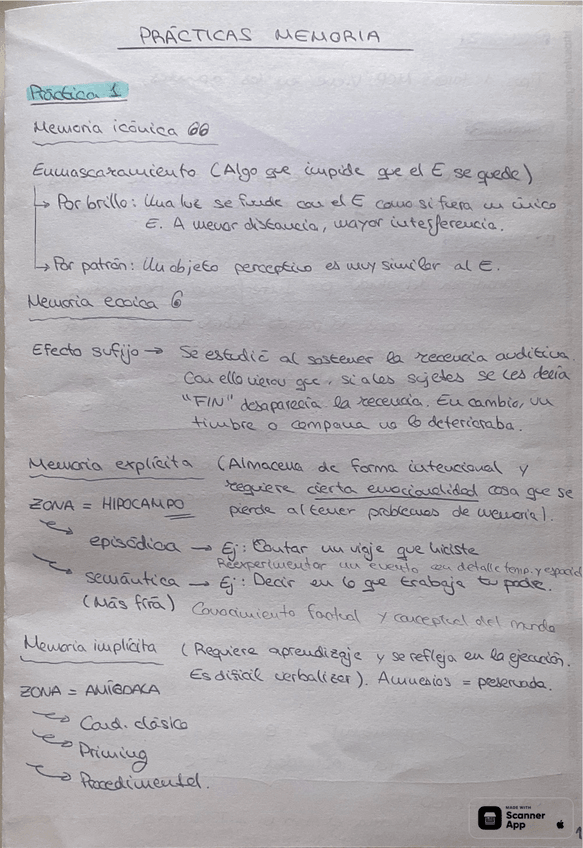 PRÁCTICAS MEMORIA
Práctica 1
Memoria icónica
Enmascaramiento (Algo que impide que el E se quede)
Por brillo: Una luz se funde con el E como si fuera un único
E. A menor distancia, mayor interferencia.
Por patrón: Un objeto perceptivo es muy similar al E.
Memoria ecoica
Efecto sufijo → Se estudió al sostener la recencia auditiva.
Con ello vieron que, si a los sujetos se les decía
"FIN" desaparecía la recencia. En cambio, un
timbre o campana no lo deterioraba.
Memoria explícita (Almacena de forma intencional y
requiere cierta emocionalidad cosa que se
ZONA = HIPOCAMPO pierde al tener problemas de memoria).
episódica → Ej: Contar un viaje que hiciste
Reexperimentar un evento con detalle temp. y espacial
semántica → Ej: Decir en lo que trabaja tu padre.
(Más fría) Conocimiento factual y conceptual del mundo
Memoria implícita (Requiere aprendizaje y se refleja en la ejecución.
Es difícil verbalizar). Amnesias = preservada.
ZONA = AMÍGDALA
Cond. clásico
Priming
Procedimental.
MADE WITH
Scanner
App
1